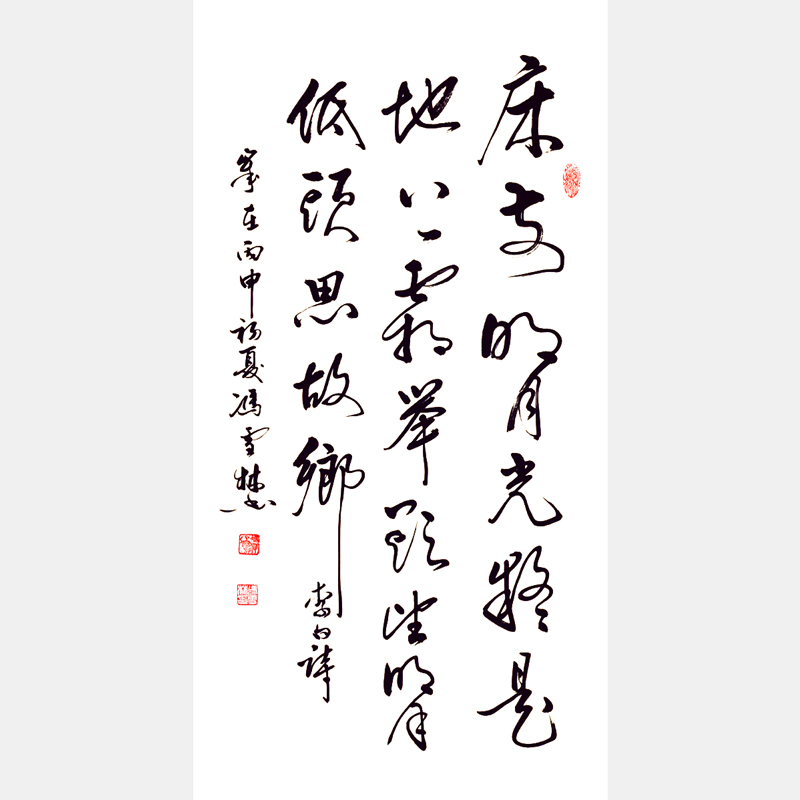 床前明月光疑是
地上霜举头望明月
低頭思故鄉
李白詩
歲在丙申初夏馮雪林書